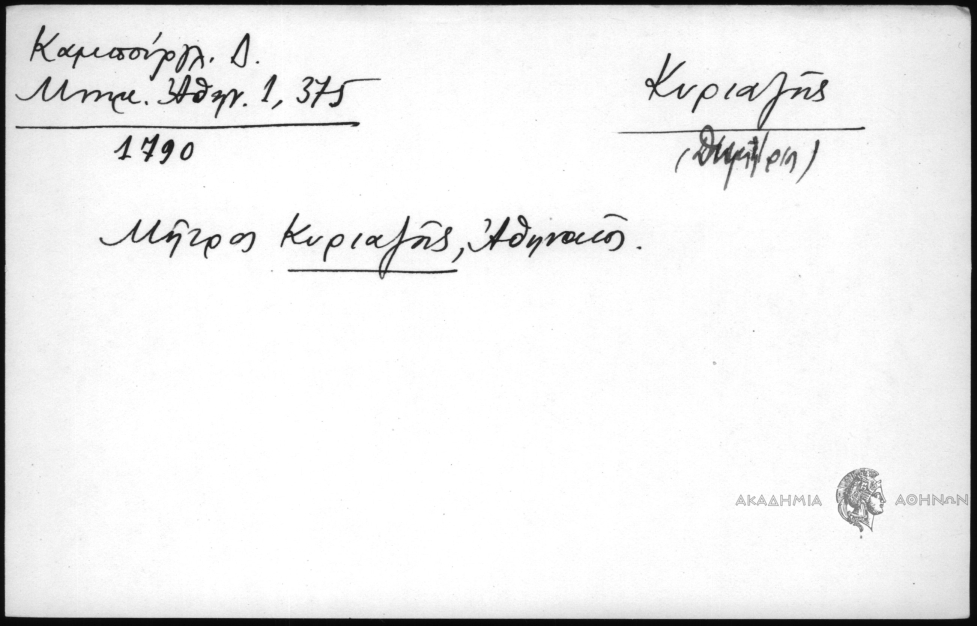 Καμπούργλ. Δ.
Μνημ. Ἀθην. 1, 375
1790
Κυριαζῆς
Μῆτρος Κυριαζῆς, Ἀθηναῖος.
ΑΚΑΔΗΜΙΑ ΑΘΗΝΩΝ